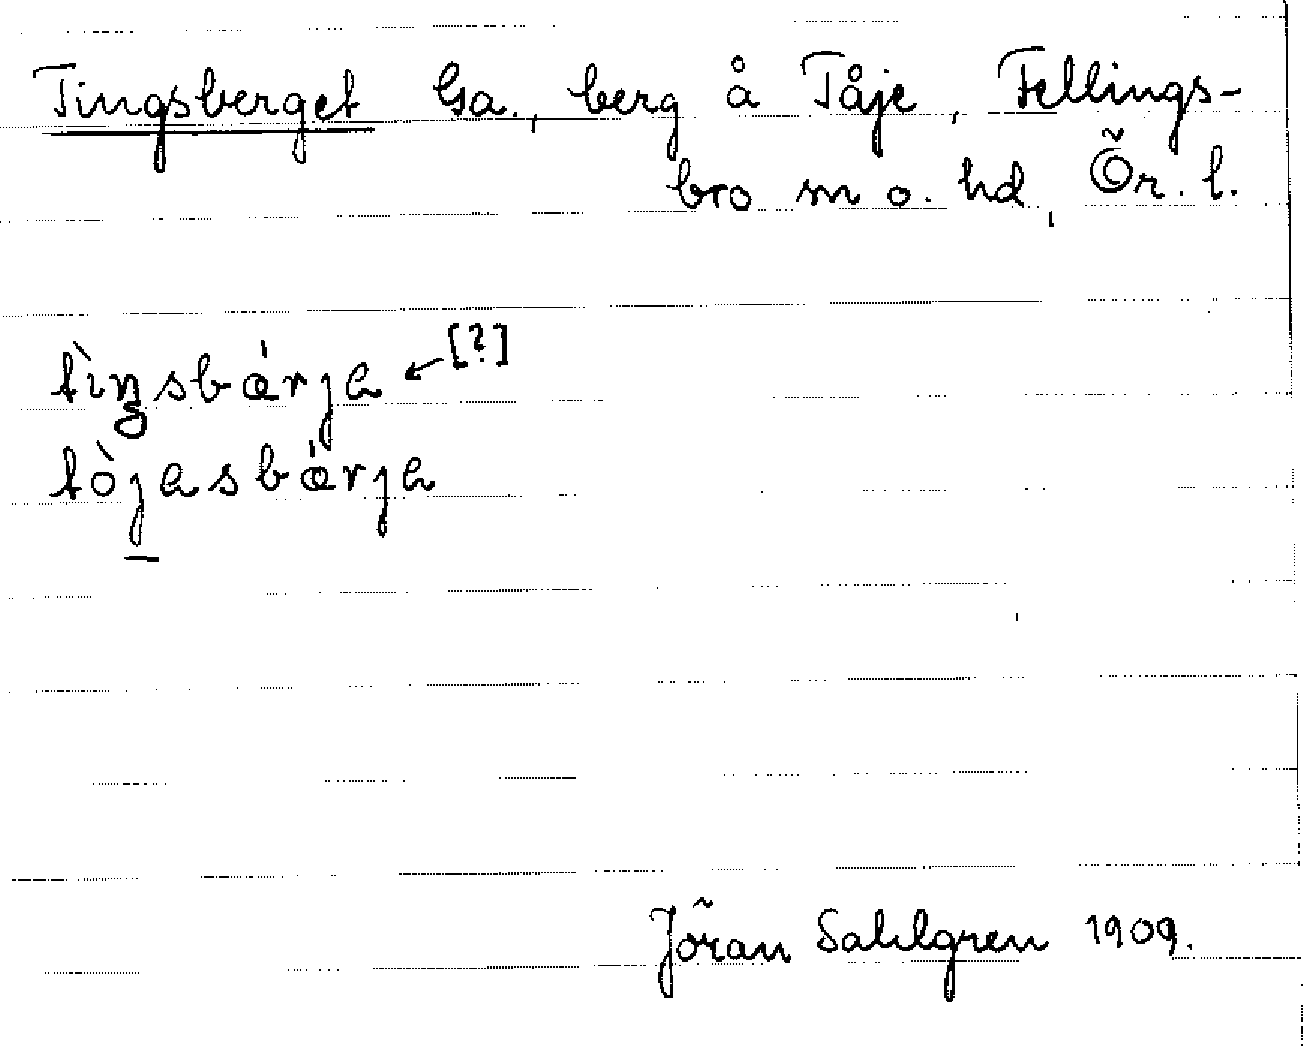 Tingsberget Ga., berg å Tåje, Fellings-
bro sn o. hd, Ör. l.
tìŋsbárja ← [?]
tòjasbárja
Jöran Sahlgren 1909.